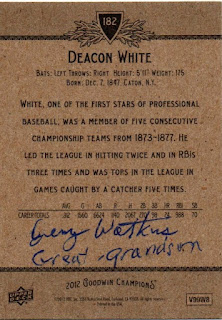 182
DEACON WHITE
BATS: LEFT THROWS: RIGHT HEIGHT: 5'11" WEIGHT: 175
BORN: DEC. 7, 1847, CATON, N.Y.
WHITE, ONE OF THE FIRST STARS OF PROFESSIONAL
BASEBALL, WAS A MEMBER OF FIVE CONSECUTIVE
CHAMPIONSHIP TEAMS FROM 1873-1877. HE
LED THE LEAGUE IN HITTING TWICE AND IN RBIS
THREE TIMES AND WAS TOPS IN THE LEAGUE IN
GAMES CAUGHT BY A CATCHER FIVE TIMES.
AVG G AB R H 2B 3B HR RBI SB
CAREER TOTALS .312 1560 6624 1140 2067 988 70
Watkins
Great-grandson
2012 GOODWIN CHAMPIONS
UPPER DECK
V99WB